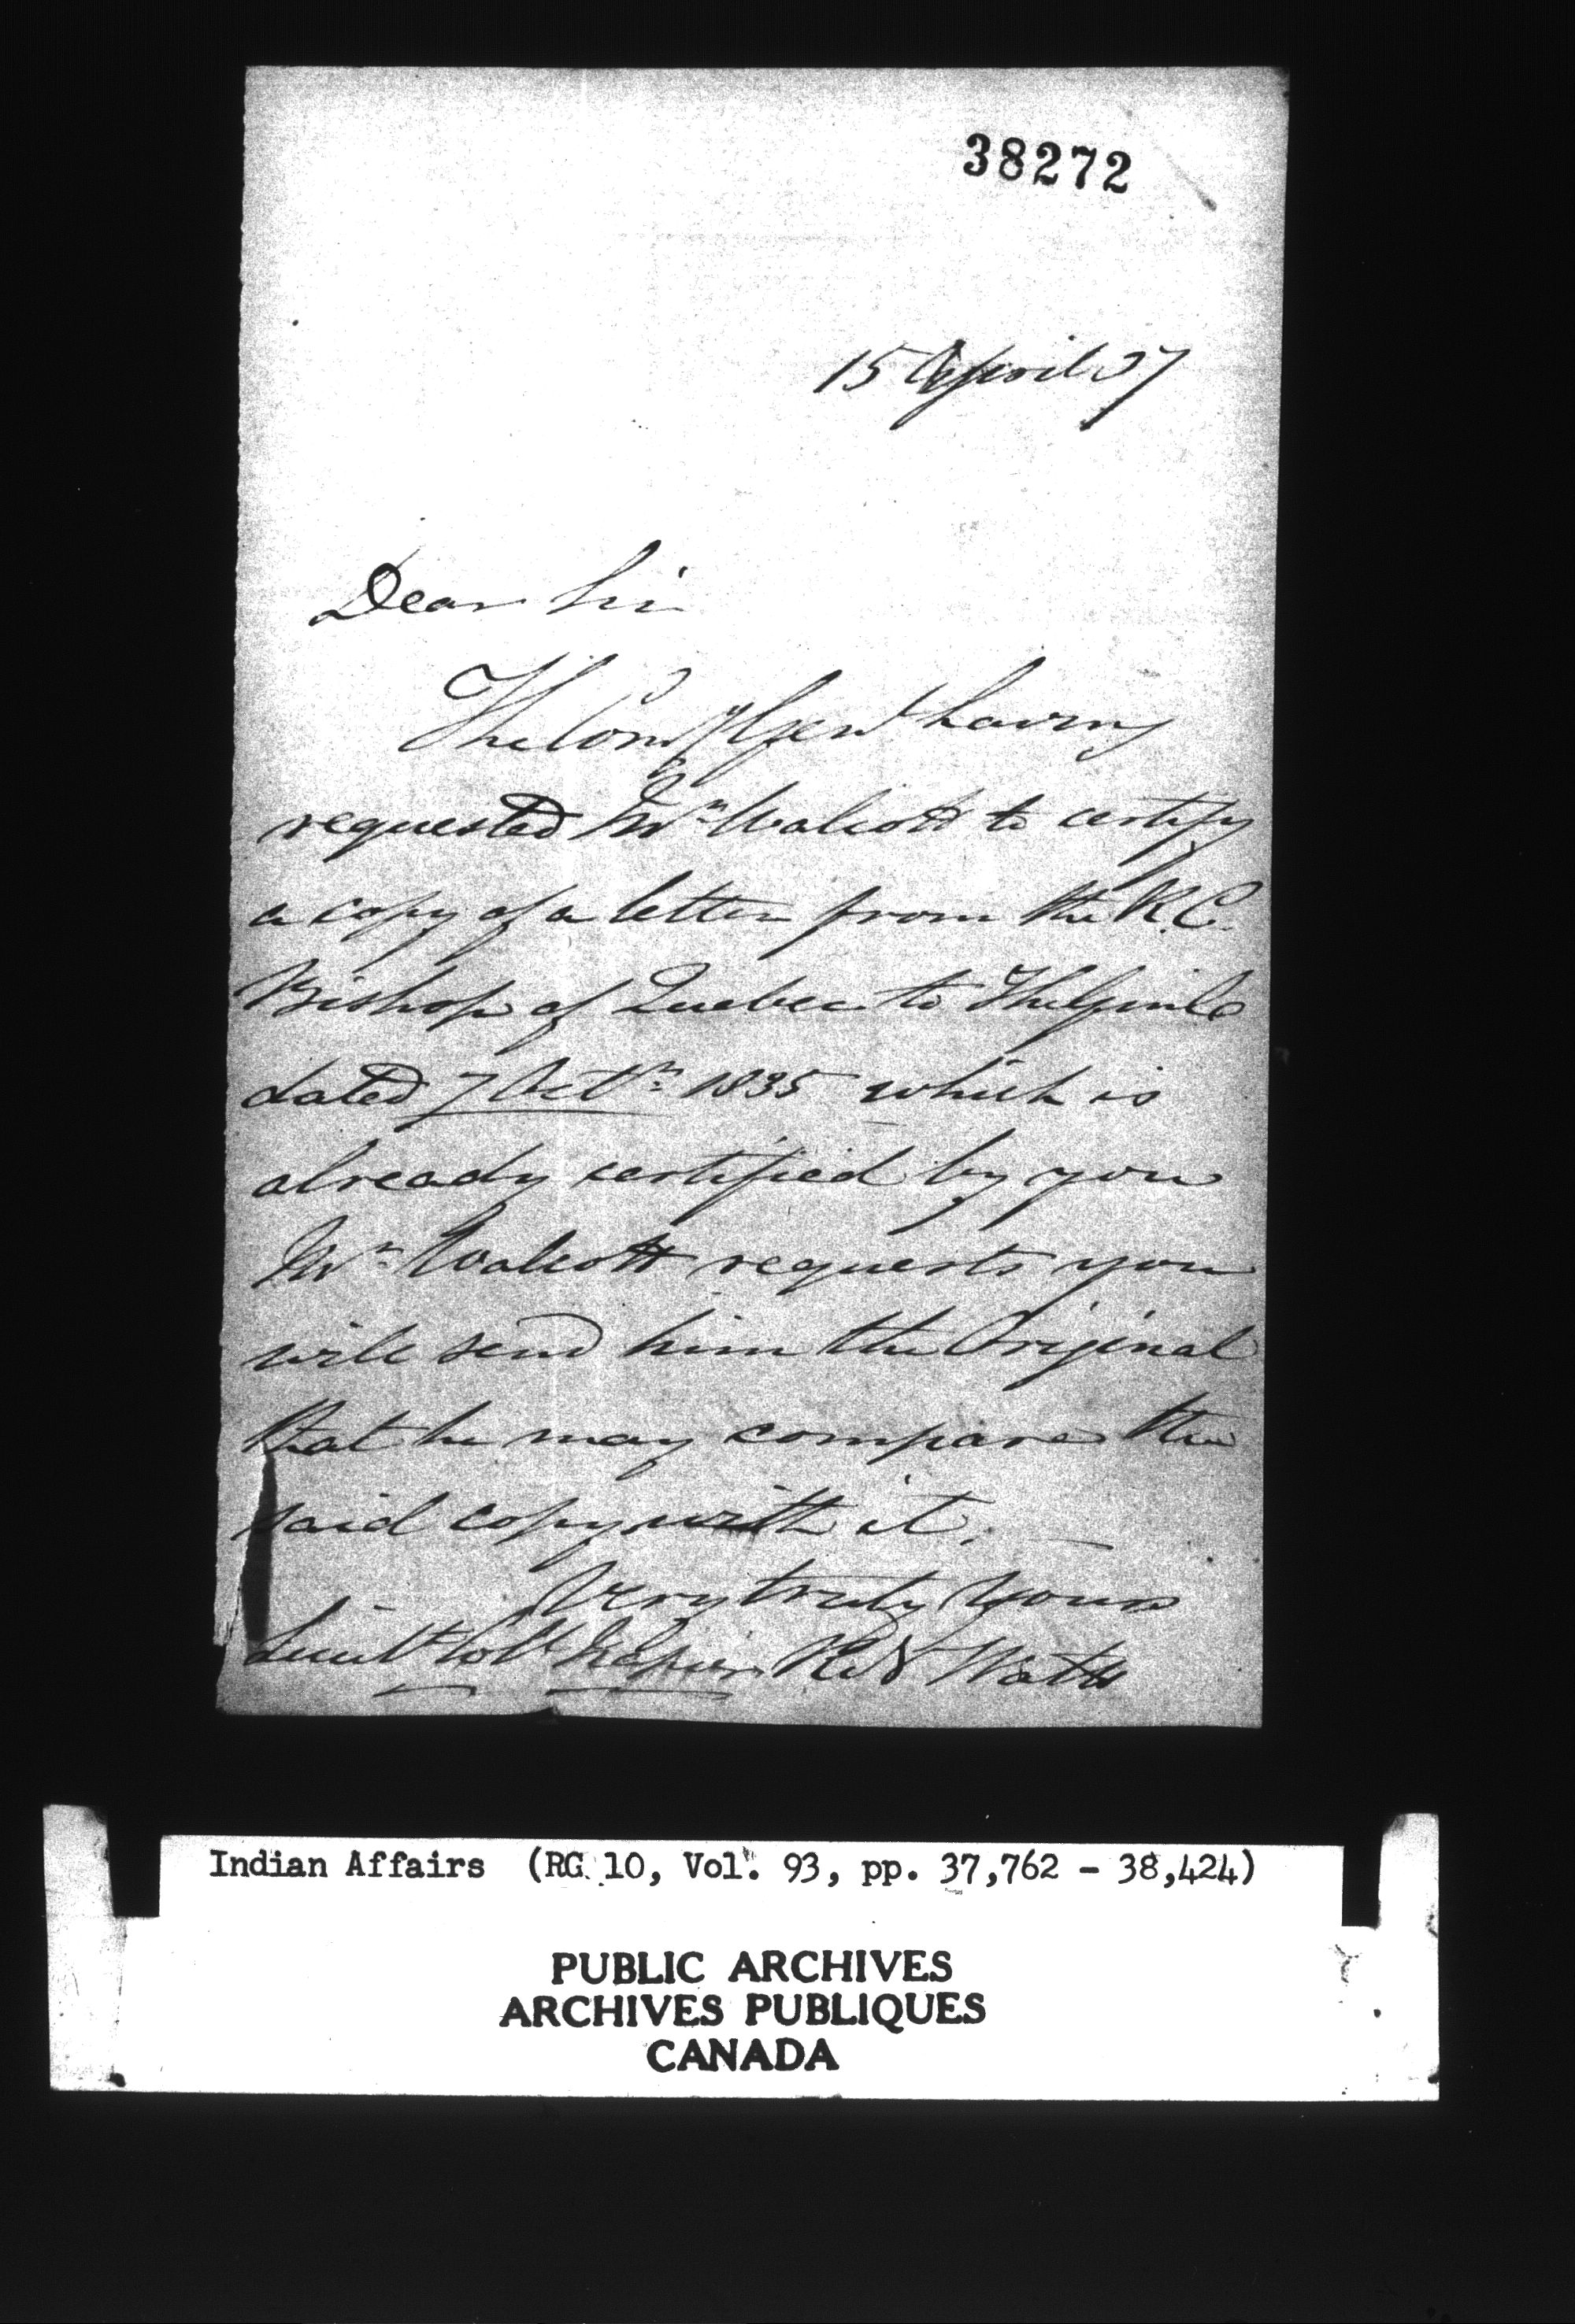 38272
15 April 37
Dear Sir
The Comy Genl having
requested Mr Walcott to certify
a copy of a letter from the R.C.
Bishop of Quebec to
dated 7 Octr 1835 which is
already certified by you
Mr Walcott requests you
will send him the Original
that he may compare the
said copy with it. —
Very truly Yours
Lieut Col Napier R Watts
Indian Affairs (RG 10, Vol. 93, pp. 37,762 - 38,424)
PUBLIC ARCHIVES
ARCHIVES PUBLIQUES
CANADA